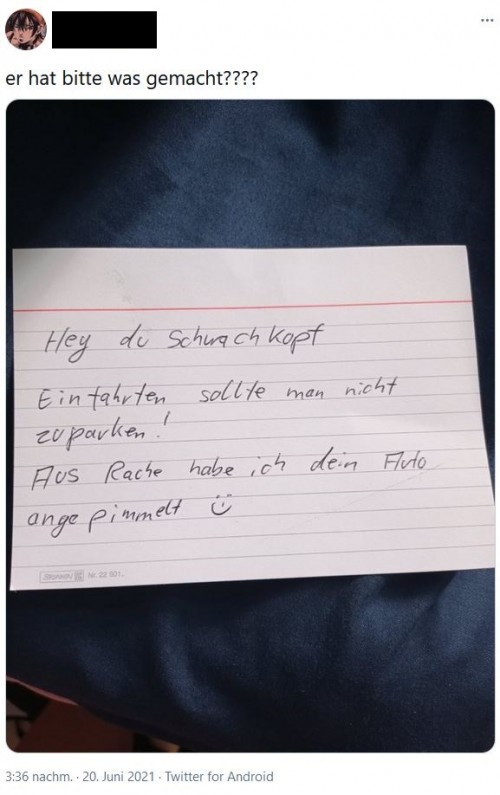 er hat bitte was gemacht????
Hey du Schwachkopf
Einfahrten sollte man nicht
zuparken!
Aus Rache habe ich dein Auto
angepimmelt :)
BRUNNEN Nr. 22 921
3:36 nachm. · 20. Juni 2021 · Twitter for Android